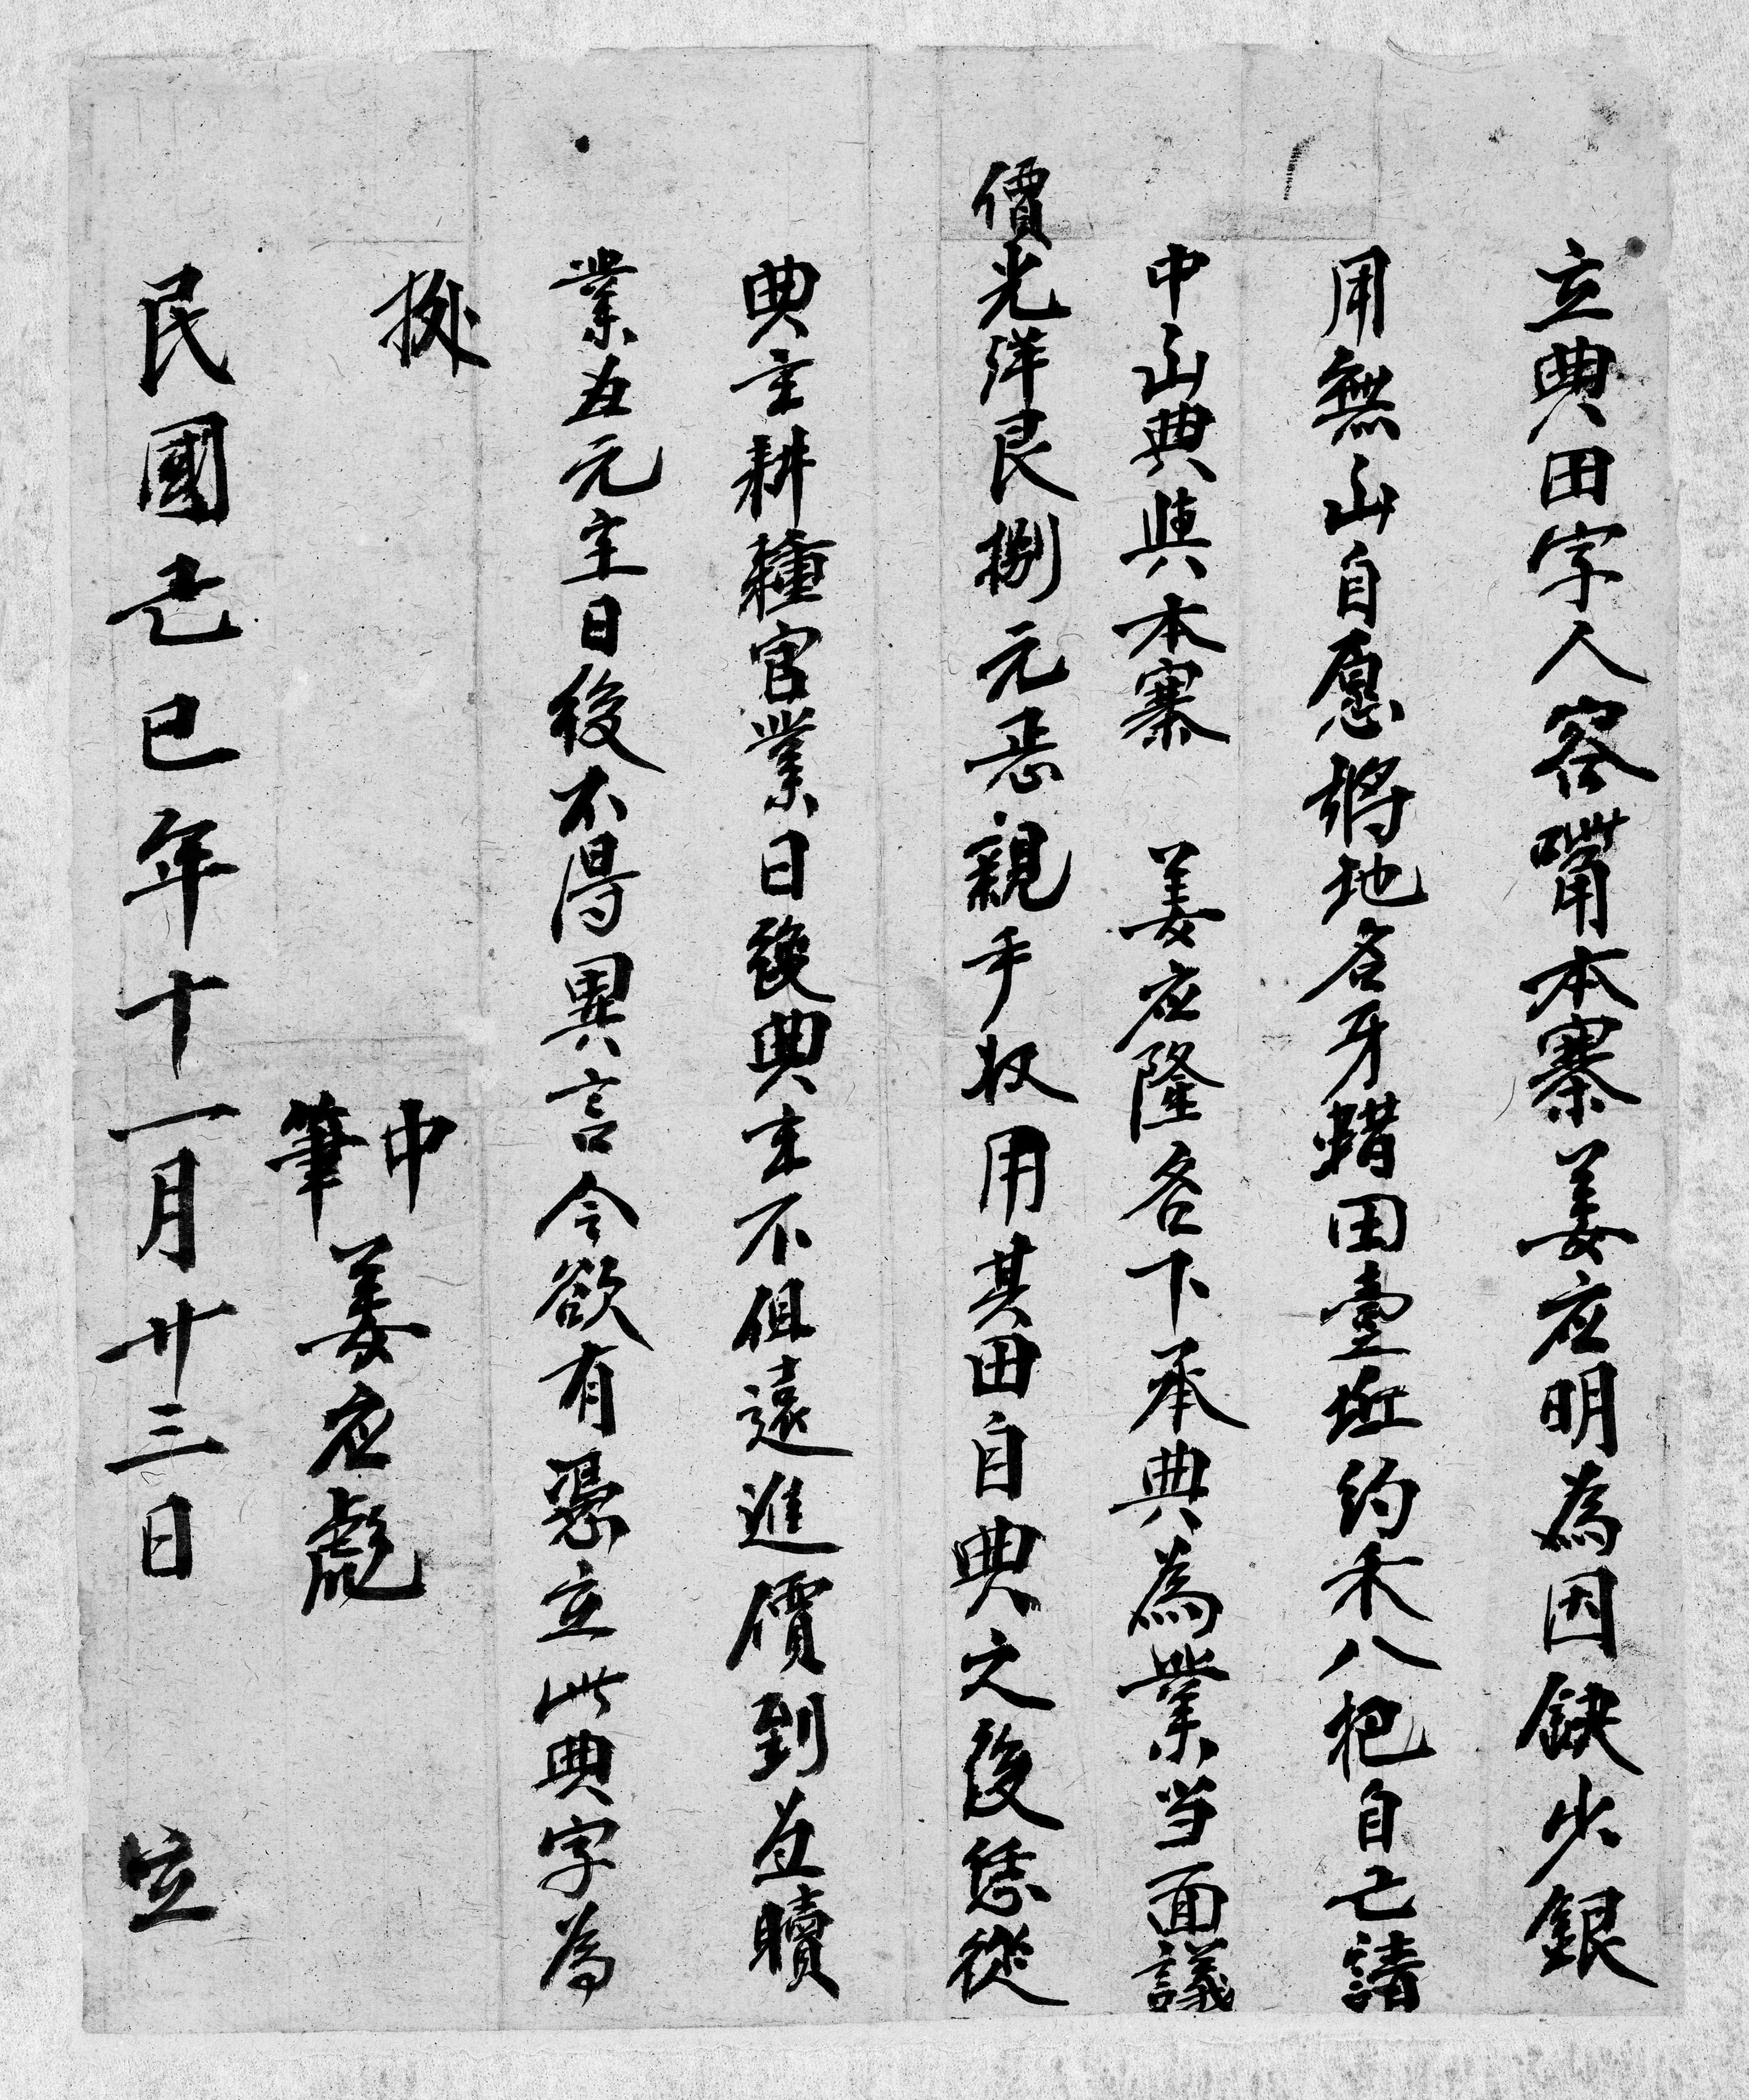 立典田字人客嘴本寨姜应明為因缺少銀
用無山自愿將地名牙蜡田壹坵約禾八把自己請
中山典與本寨 姜应隆名下承典為業当面議
價光洋艮捌元悉親手收用其田自典之後恁從
典主耕種官業日後典主不俱遠進價到並贖
業五元主日後不得異言今欲有憑立此典字為
㨿
中
筆
姜应彪
民國己巳年十一月廿三日 立